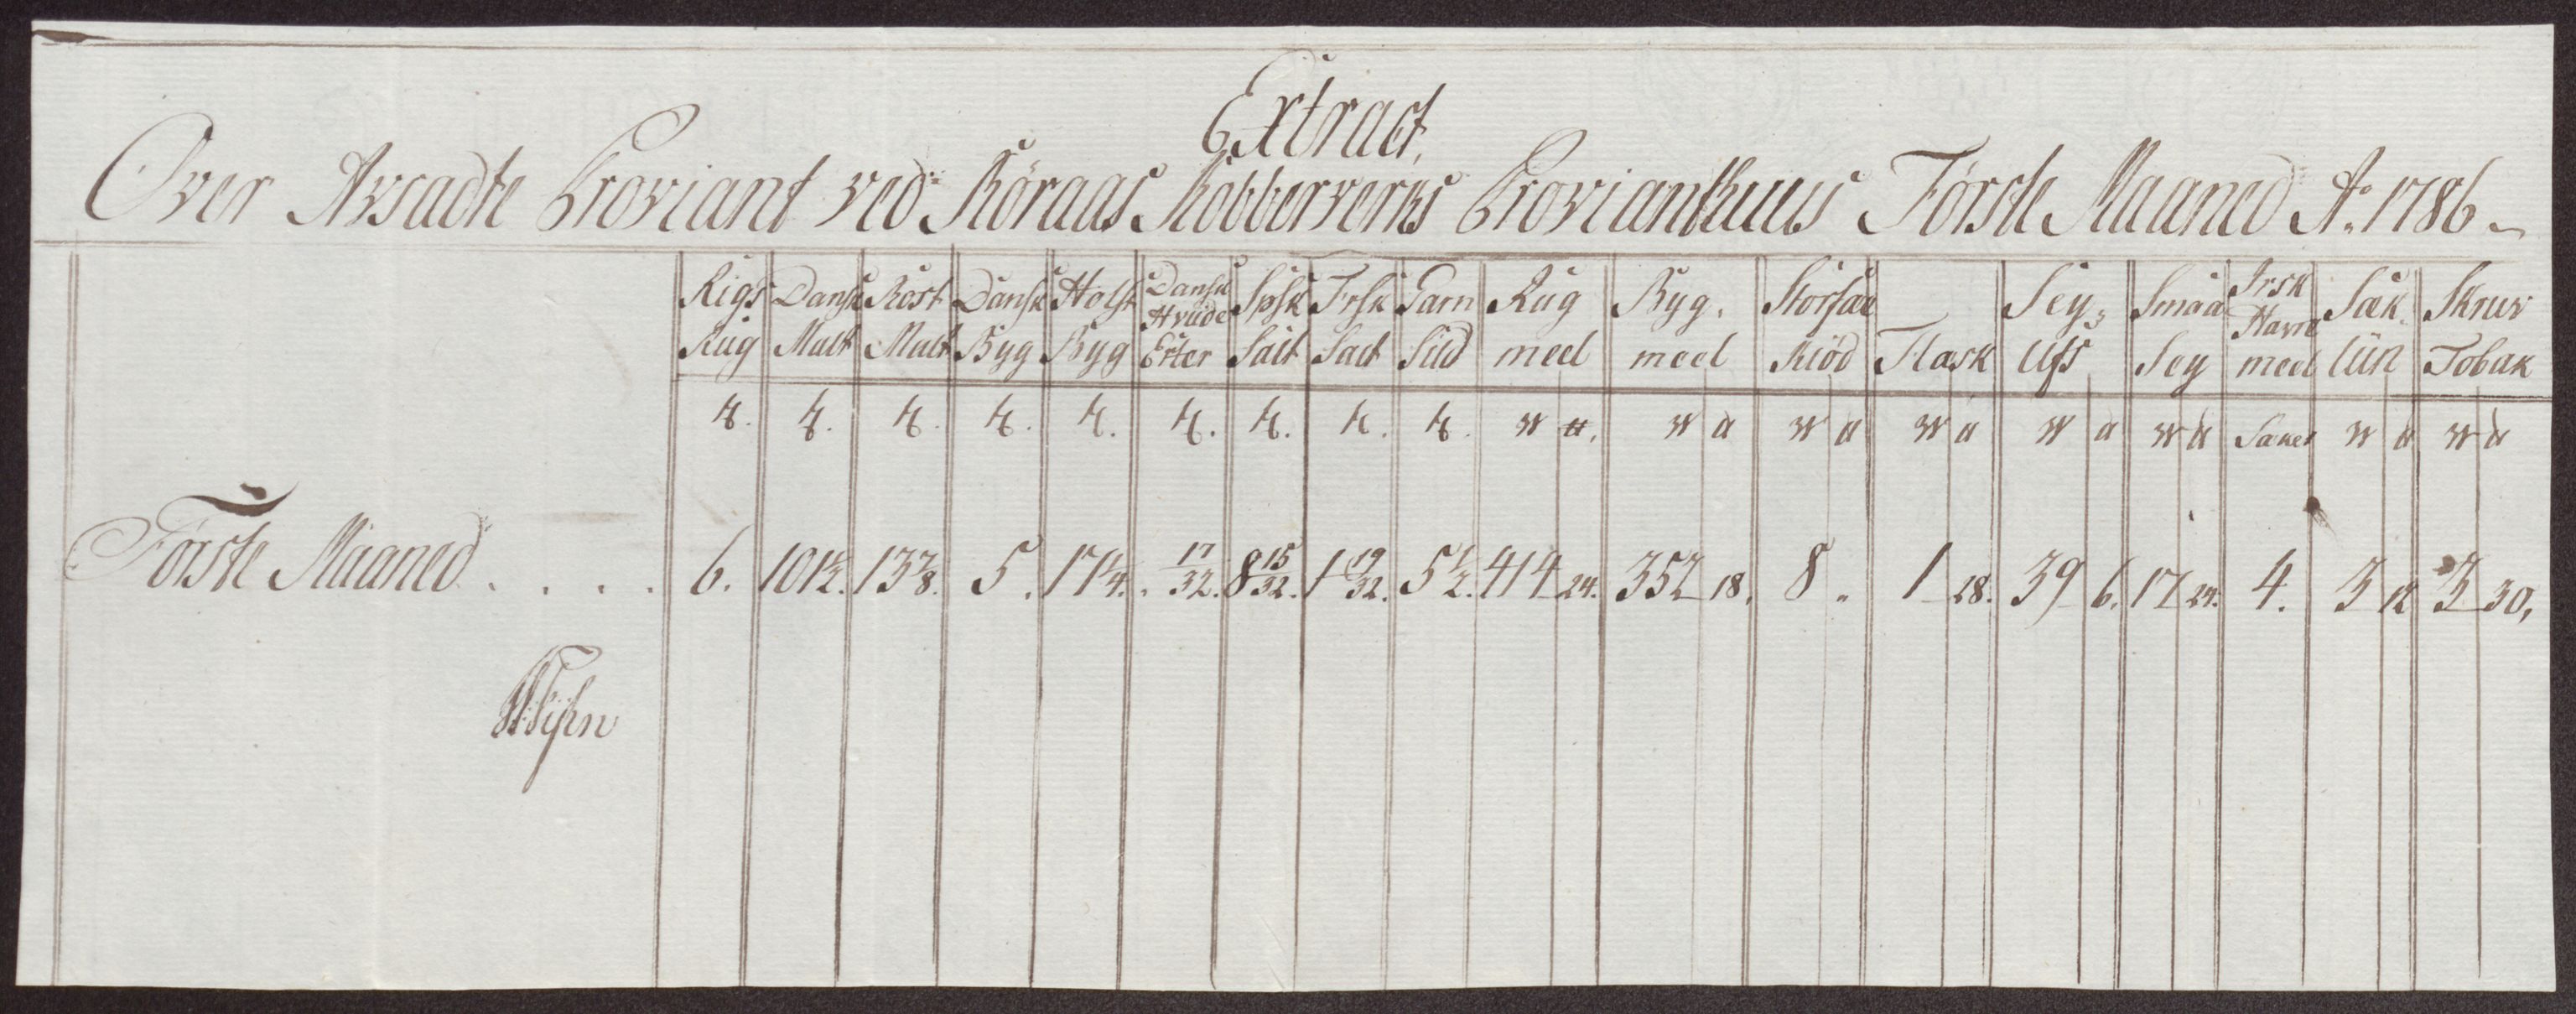 Extract,
Over Avsadte Proviant ved Röraas Kobberverks Provianthuus Første Maaned Ao 1786
Rigs Rug | Dansk Malt | Rost Malt | Dansk Byg | Holst Byg | Dansk Hvide Erter | Spsk Salt | Frsk Salt | Tarn Sild | Rug meel | Byg. meel | Storsæk Kiød | Flæsk | Sey Ufs | Smaa Sey | Irsk Havre meel | Sæk | Skruv Tobak
Sækes
Første Maaned . . . . 6. | 101 1/2. | 13 7/8. | 5. | 17 1/4. | 17/32. | 8 15/32. | 1 19/32. | 5 1/2. | 414 24. | 352 18. | 8 „ | 1 28. | 39 6. | 17 24. | 4. | 3 12 | 3 30,